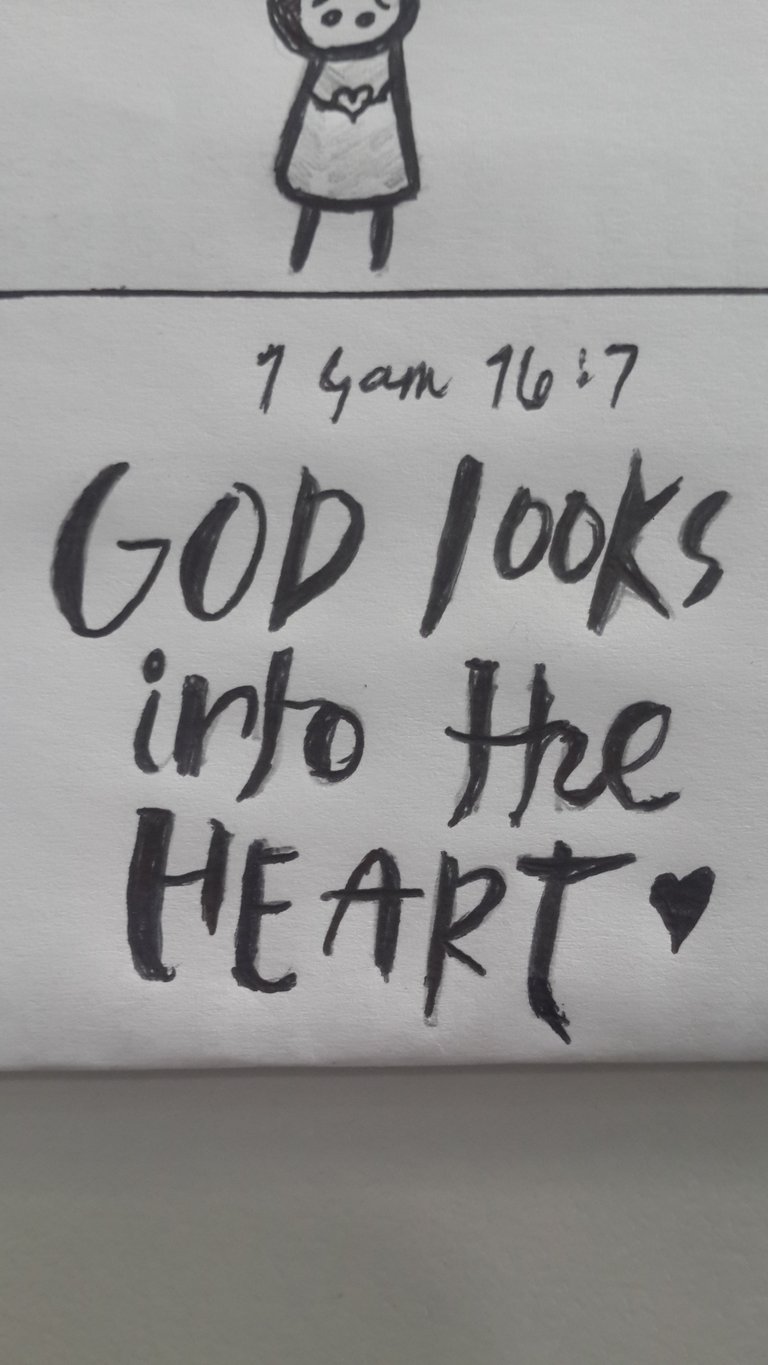 1 Sam 16:7
GOD looks
into the
HEART ♥